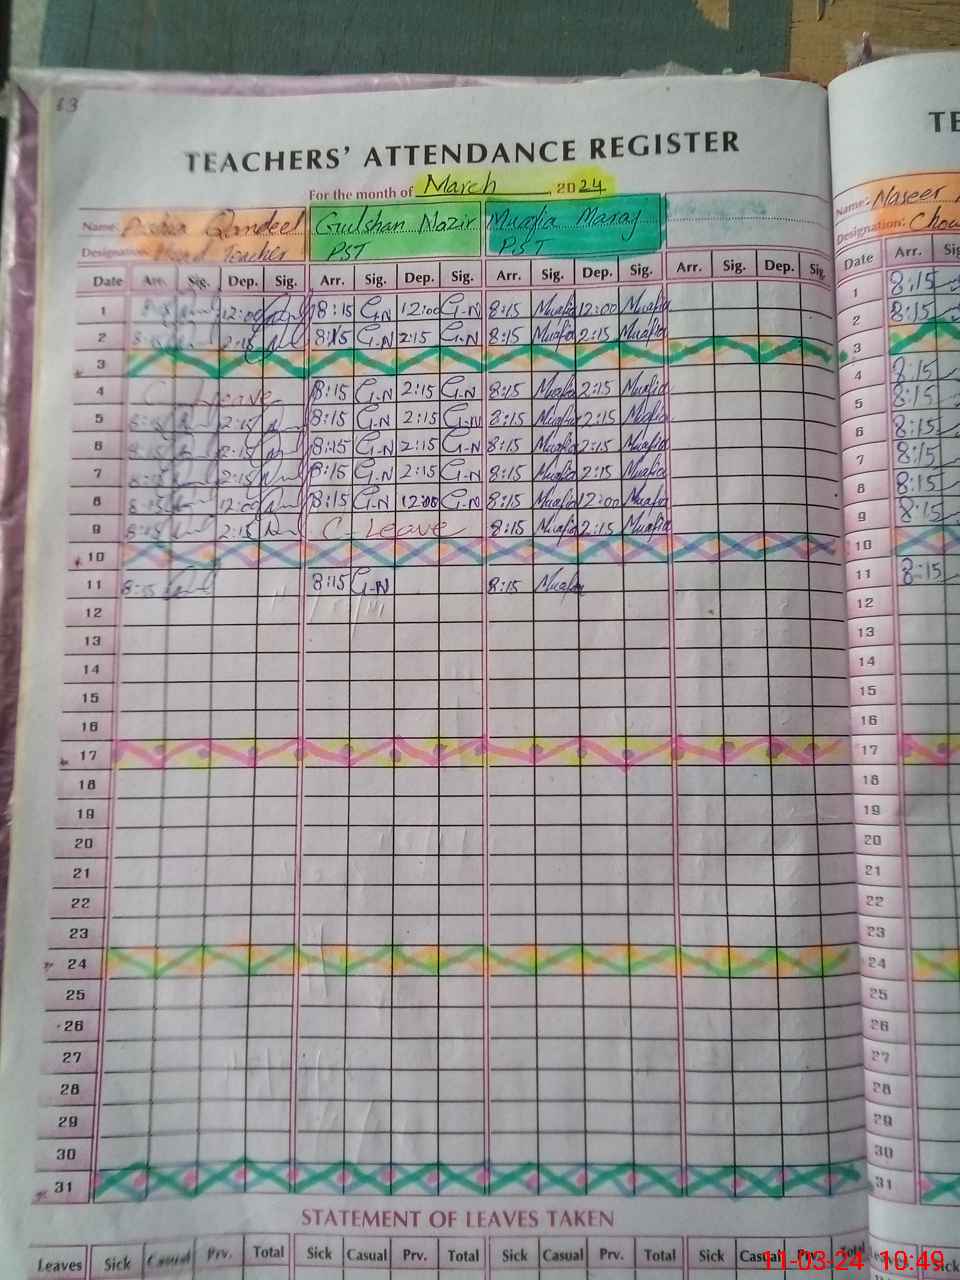 13
TEACHERS' ATTENDANCE REGISTER
For the month of March 2024
Name: Qandeel Gulshan Nazir Muafia Maraj
Designation: Head Teacher PST PST
Date Arr. Sig. Dep. Sig. Arr. Sig. Dep. Sig. Arr. Sig. Dep. Sig. Arr. Sig. Dep. Sig.
1 12:00 8:15 G-N 12:00 G-N 8:15 Muafia 12:00 Muafia
2 8:15 2:15 8:15 G-N 2:15 G-N 8:15 Muafia 2:15 Muafia
3
4 C Leave 8:15 G-N 2:15 G-N 8:15 Muafia 2:15 Muafia
5 8:15 2:15 8:15 G-N 2:15 G-N 8:15 Muafia 2:15 Muafia
6 8:15 2:15 8:15 G-N 2:15 G-N 8:15 Muafia 2:15 Muafia
7 8:15 2:15 8:15 G-N 2:15 G-N 8:15 Muafia 2:15 Muafia
8 8:15 12:00 8:15 G-N 12:00 G-N 8:15 Muafia 12:00 Muafia
9 8:15 2:15 C-Leave 8:15 Muafia 2:15 Muafia
10
11 8:15 8:15 G-N 8:15 Muafia
12
13
14
15
16
17
18
19
20
21
22
23
24
25
26
27
28
29
30
31
STATEMENT OF LEAVES TAKEN
Leaves Sick Casual Prv. Total Sick Casual Prv. Total Sick Casual Prv. Total Sick Casual Prv. Total
TE
Name: Naseer
Designation: Chow
Date Arr. Sig
1 8:15
2 8:15
3
4 8:15
5 8:15
6 8:15
7 8:15
8 8:15
9 8:15
10
11 8:15
12
13
14
15
16
17
18
19
20
21
22
23
24
25
26
27
28
29
30
31
Sick
11-03-24 10:49